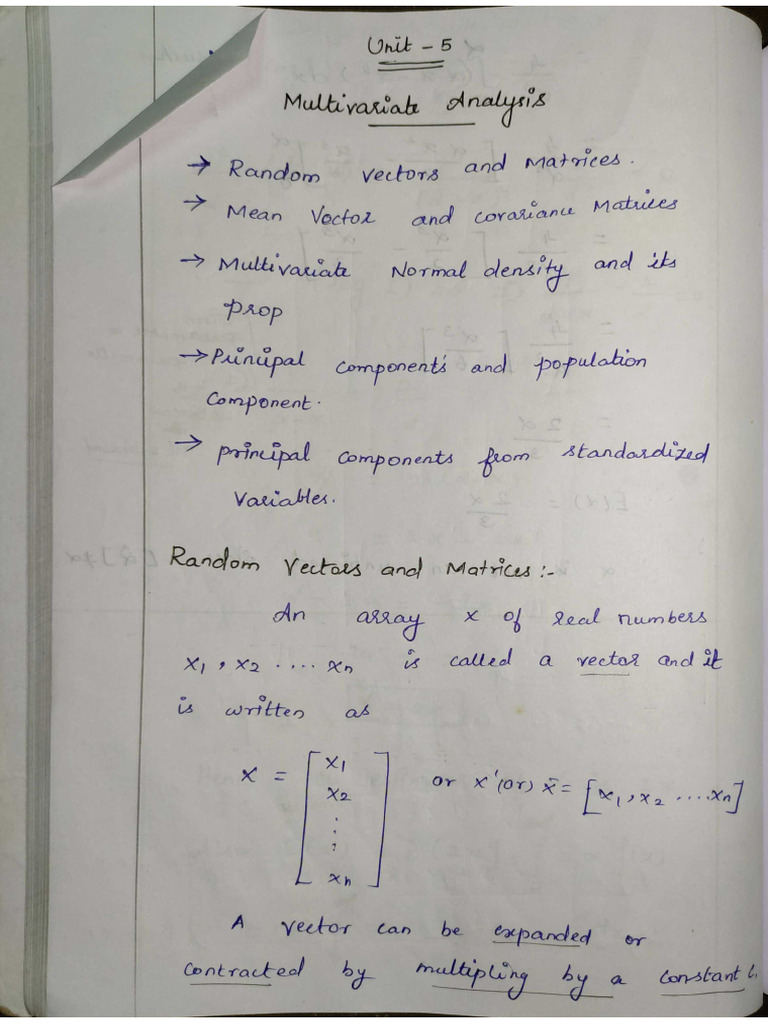 Unit - 5
Multivariate Analysis
→ Random vectors and Matrices.
→ Mean Vector and covariance Matrices
→ Multivariate Normal density and its
prop
→ Principal components and population
component.
→ principal components from standardized
variables.
Random Vectors and Matrices :-
An array x of real numbers
x₁, x₂ .... xₙ is called a vector and it
is written as
x = [x₁ x₂ ⋮ xₙ] or x' (or) x̄ = [x₁, x₂ ....xₙ]
A vector can be expanded or
contracted by multipling by a constant c.